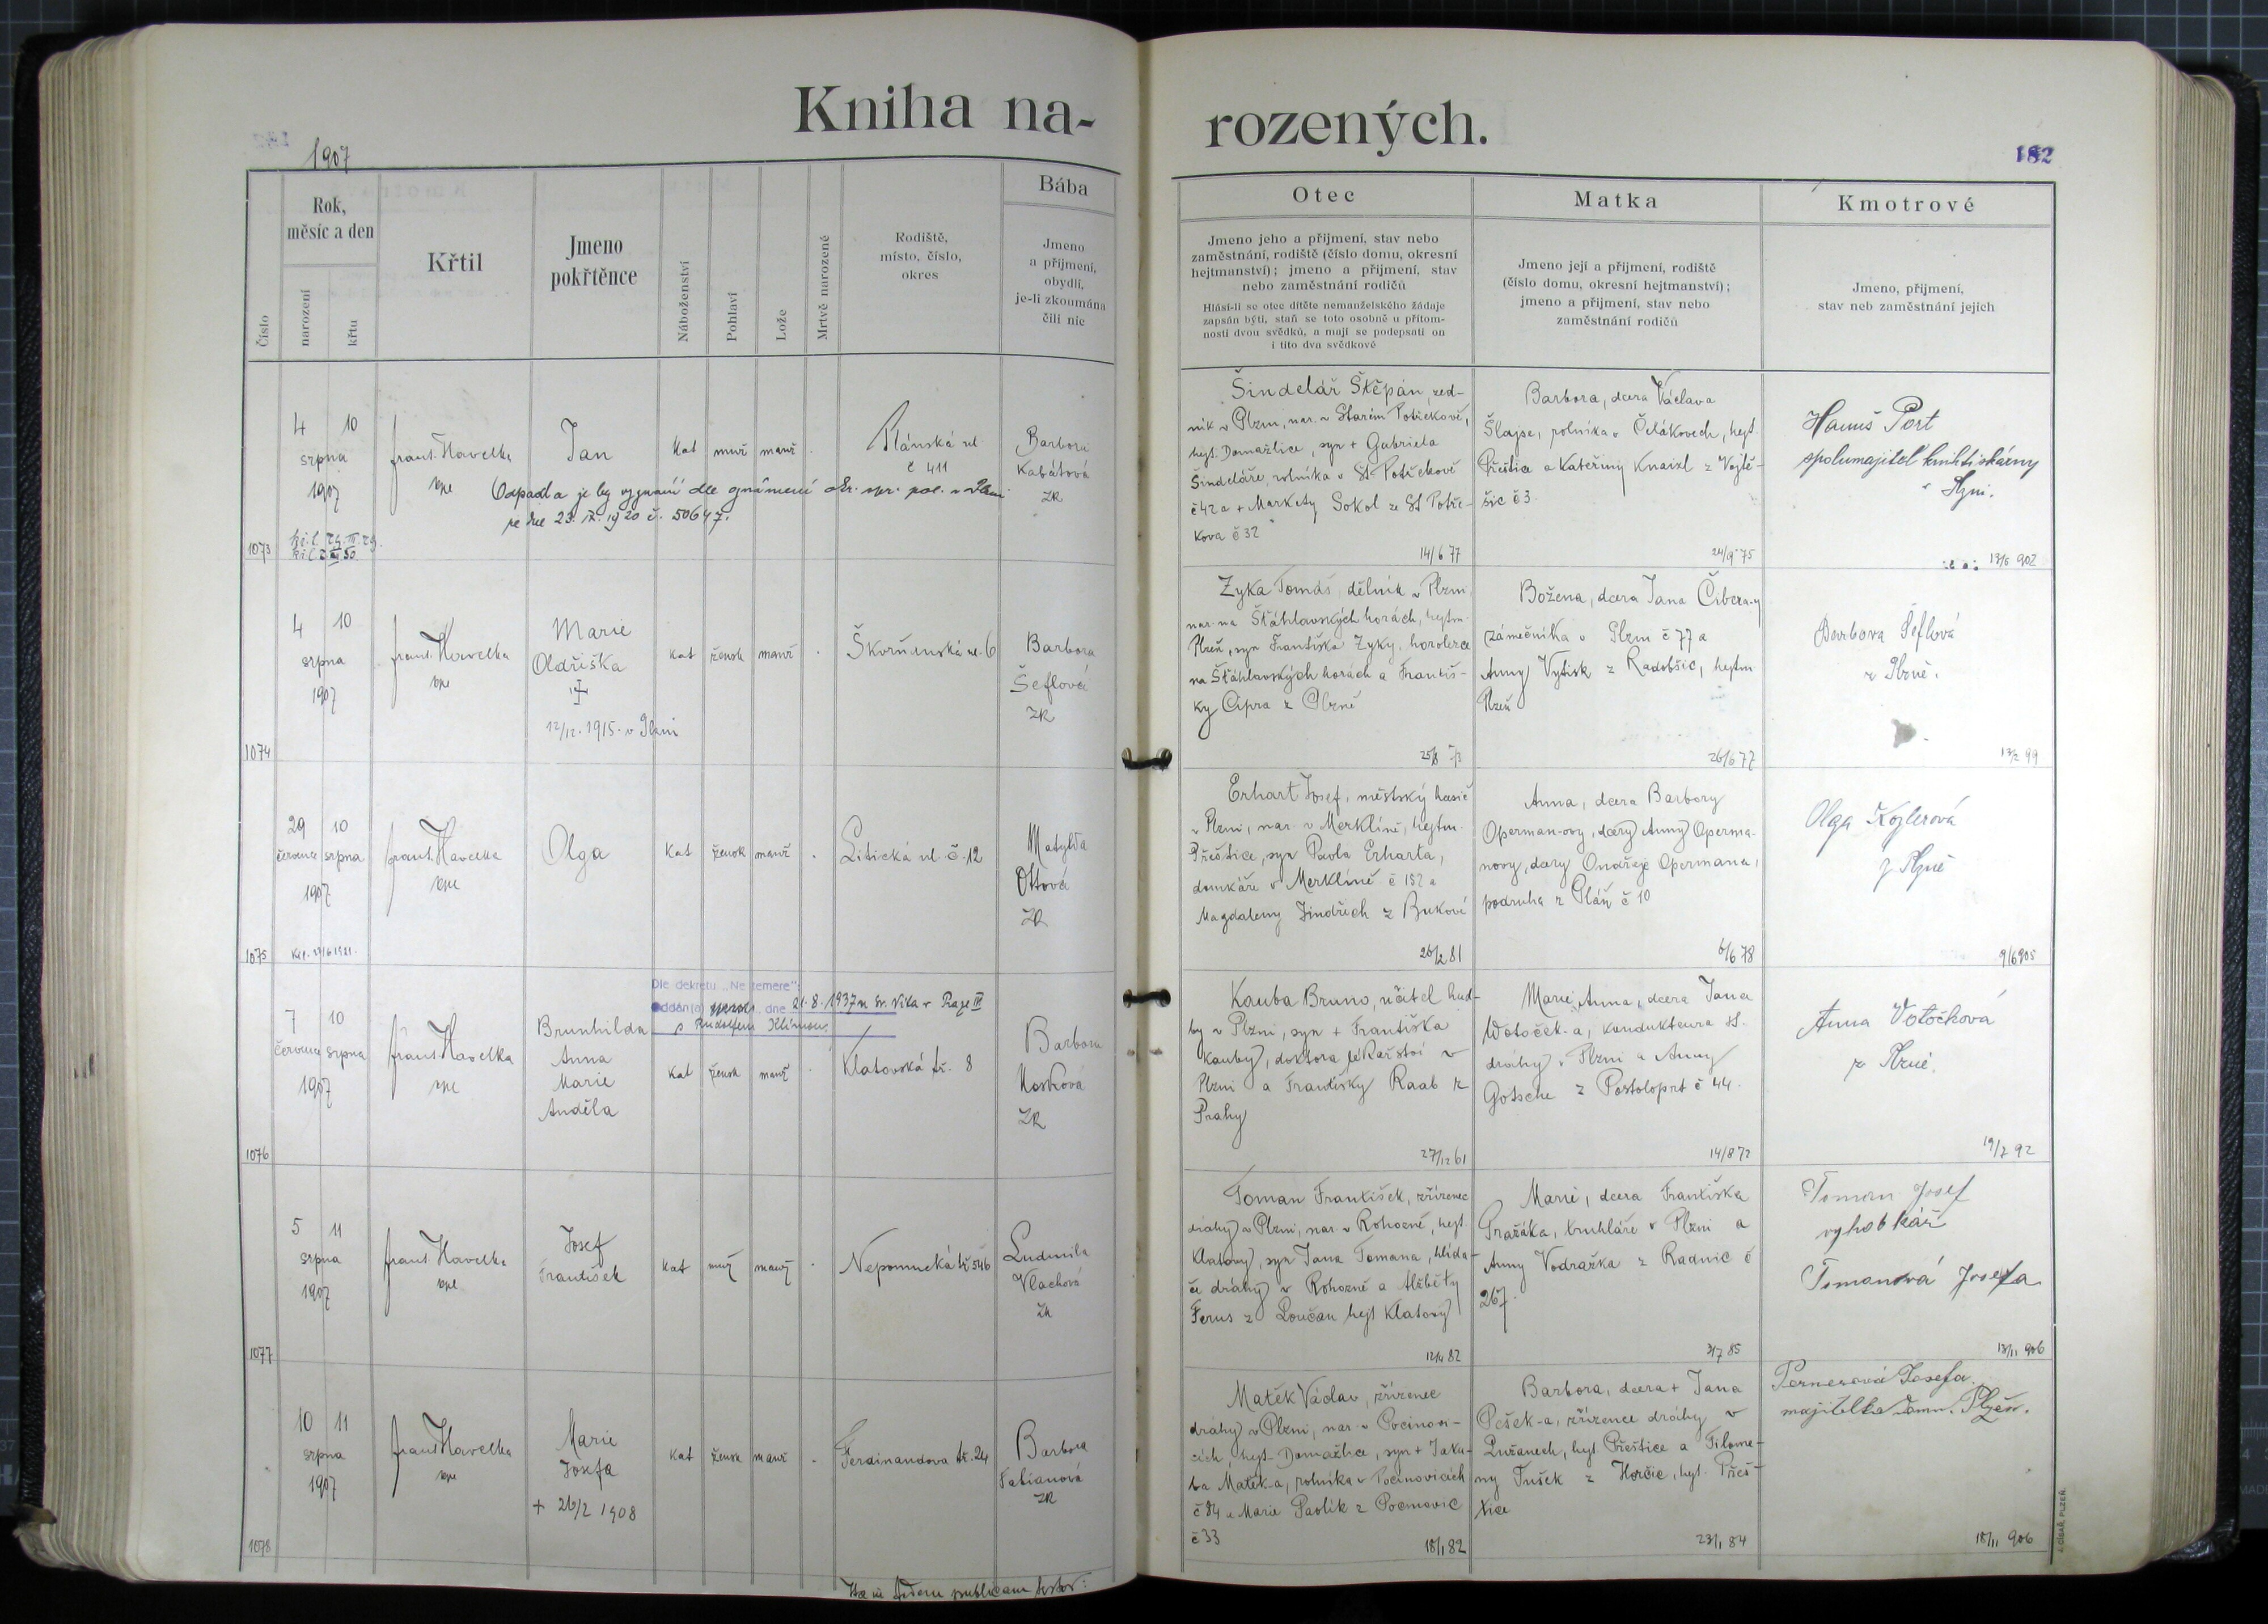 Kniha na-
rozených.
182
1907
Číslo
Rok,
měsíc a den
narození
křtu
Křtil
Jmeno
pokřtěnce
Náboženství
Pohlaví
Lože
Mrtvě narozené
Rodiště,
místo, číslo,
okres
Bába
Jmeno
a příjmení,
obydlí,
je-li zkoumána
čili nic
Otec
Jmeno jeho a přijmení, stav nebo
zaměstnání, rodiště (číslo domu, okresní
hejtmanství); jmeno a přijmení, stav
nebo zaměstnání rodičů
Hlásí-li se otec dítěte nemanželského žádaje
zapsán býti, staň se toto osobně u přítom-
nosti dvou svědků, a mají se podepsati on
i tito dva svědkové
Matka
Jmeno její a přijmení, rodiště
(číslo domu, okresní hejtmanství);
jmeno a přijmení, stav nebo
zaměstnání rodičů
Kmotrové
Jmeno, přijmení,
stav neb zaměstnání jejich
1073
4 10
srpna
1907
frant. Havelka
Jan
Kat
muž
manž
Plánská ul.
č 411
Barbora
Kabátová
ZR
Odpadl a je bez vyznání dle oznámení okr. spr. pol. v Plzni
ze dne 23. IX. 1920 č. 50647.
Šindelář Štěpán, zed-
ník v Plzni, nar. v Starém Potčekově,
hejt. Domažlice, syn + Gabriela
Šindeláře, rolníka v St. Potčekově
č 42 a + Markety Sokol ze St Potče-
kova č 32
14/6 77
Barbora, dcera Václava
Šlajse, rolníka v Čelákovech, hejt.
Přeštice a Kateřiny Knaizl z Vojtě-
šic č 3
24/9 75
Hanuš Port
spolumajitel knihtiskárny
v Plzni.
13/5 902
1074
4 10
srpna
1907
frant. Havelka
Marie
Oldřiška
12/12. 1915. v Plzni
Kat
žensk
manž
Škvrňanská ul. 6
Barbora
Šeflová
ZR
Zyka Tomáš, dělník v Plzni,
nar. na Šťáhlavských horách, hejtm.
Plzeň, syn Františka Zyky, horolezce
na Šťáhlavských horách a Františ-
ky Cipra z Plzně
Božena, dcera Jana Čibera-y
zámečníka v Plzni č 77 a
Anny Vytisk z Radobšic, hejtm
Plzeň
26/6 77
Barbora Šeflová
z Plzně.
13/2 99
1075
29 10
července srpna
1907
frant. Havelka
Olga
Kat
žensk
manž
Litická ul. č. 12
Matylda
Ottová
ZR
Erhart Josef, městský hasič
v Plzni, nar. v Merklíně, hejtm.
Přeštice, syn Pavla Erharta,
domkáře v Merklíně č 152 a
Magdaleny Jindřich z Bukové
26/2 81
Anna, dcera Barbory
Operman-ovy, dcery Anny Operma-
novy, dcery Ondřeje Opermana,
podruha z Plán č 10
6/6 78
Olga Koglerová
z Plzně
9/6 905
1076
Dle dekretu „Ne temere“:
oddán(a) dne 21. 8. 1937 u sv. Víta v Praze IV
s Rudolfem Klímou
7 10
července srpna
1907
frant. Havelka
Brunhilda
Anna
Marie
Anděla
Kat
žensk
manž
Klatovská tř. 8
Barbora
ZR
Kauba Bruno, učitel hud-
by v Plzni, syn + Františka
Kauby, doktora lékařství v
Plzni a Františky Raab z
Prahy
27/12 61
Marie Anna, dcera Jana
Wotoček-a, kondukteura st.
dráhy v Plzni a Anny
Gotsche z Postoloprt č 44.
14/8 72
Anna Votočková
z Plzně.
19/7 92
1077
5 11
srpna
1907
frant. Havelka
Josef
František
Kat
muž
manž
Nepomucká tř 546
Ludmila
Vlachová
ZR
Toman František, zřízenec
dráhy v Plzni, nar. v Rohozně, hejt.
Klatovy, syn Jana Tomana, hlída-
če dráhy v Rohozně a Alžběty
Ferus z Loučan hejt Klatovy
12/4 82
Marie, dcera Františka
Pražáka, truhláře v Plzni a
Anny Vodražka z Radnic č
267.
3/7 85
Toman Josef
výhybkář
Tomanová Josefa
13/11 906
1078
10 11
srpna
1907
frant Havelka
Marie
Josefa
+ 26/2 1908
Kat
žensk
manž
Ferdinandova tř. 24
Barbora
Fabianová
ZR
Matěk Václav, zřízenec
dráhy v Plzni, nar. v Pocinovi-
cích, hejt. Domažlice, syn + Jaku-
ba Matěk-a, rolníka v Pocinovicích
č 84 a Marie Pavlík z Pocinovic
č 33
18/1 82
Barbora, dcera + Jana
Pešek-a, zřízence dráhy v
Lužanech, hejt. Přeštice a Filome-
ny Tušek z Horčic, hejt. Přeš-
tice
23/1 84
Pernerová Josefa
majitelka domu. Plzeň.
18/11 906
J. CÍSAŘ, PLZEŇ.